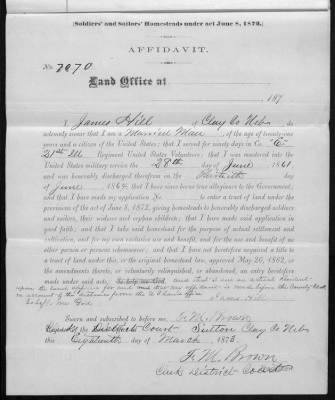 (Soldiers' and Sailors' Homesteads under act June 8, 1872.)
AFFIDAVIT.
No. 7070
Land Office at
, 187
I, James Hill, of Clay Co Nebr, do
solemnly swear that I am a Married Man, of the age of twenty-one
years and a citizen of the United States; that I served for ninety days in Co. "C"
31st Ill Regiment United States Volunteers; that I was mustered into the
United States military service the 28th day of June, 1861,
and was honorably discharged therefrom on the day
of June, 1864; that I have since borne true allegiance to the Government; and
that I have made my application No. to enter a tract of land under the
provisions of the act of June 8, 1872, giving homesteads to honorably discharged soldiers
and sailors, their widows and orphan children; that I have made said application in
good faith; and that I take said homestead for the purpose of actual settlement and
cultivation, and for my own exclusive use and benefit, and for the use and benefit of
no other person or persons whomsoever; that I have not heretofore acquired a title to
a tract of land under this, or the original homestead law, approved May 20, 1862, or
the amendments thereto, or voluntarily relinquished, or abandoned, an entry heretofore
made under said acts, and that I am an actual resident
upon the land applied for and that this affidavit is made before the County Clerk
on account of the distance from the U S Land Office
So help me God James Hill
Sworn and subscribed to before me, F. M. Brown
District Court Sutton Clay Co Nebr
this Eighteenth day of March, 1873.
F. M. Brown
Clerk District Court